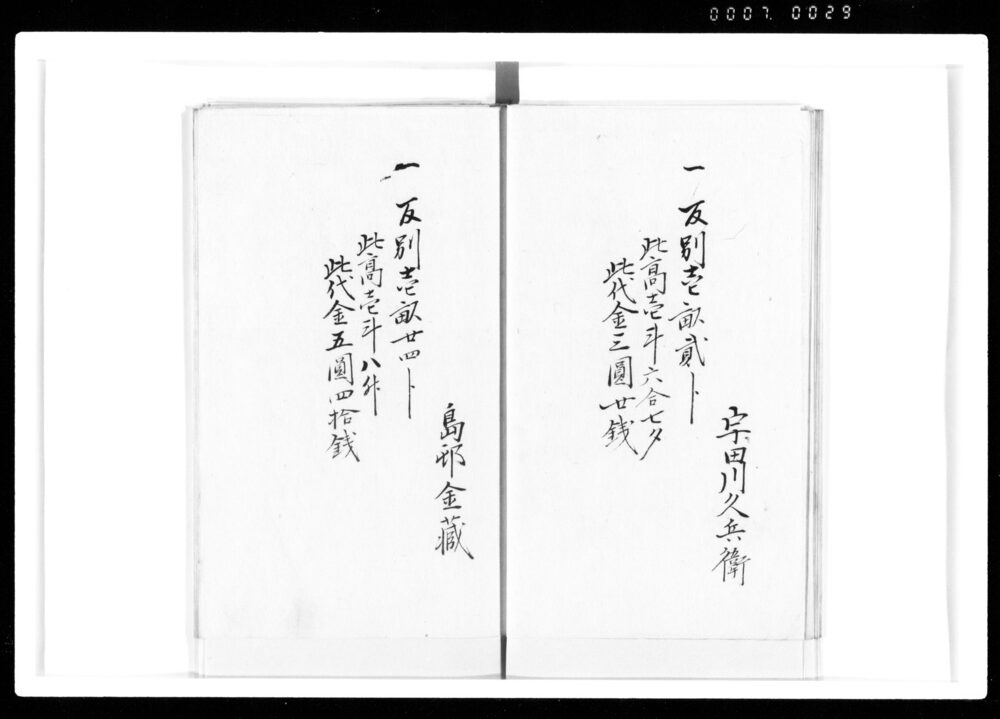 0007. 0029
宇田川久兵衛
一 反別壱畝貳卜
此高壱斗六合七夕
此代金三圓廿銭
島邨金藏
一 反別壱畝廿四卜
此高壱斗八升
此代金五圓四拾銭